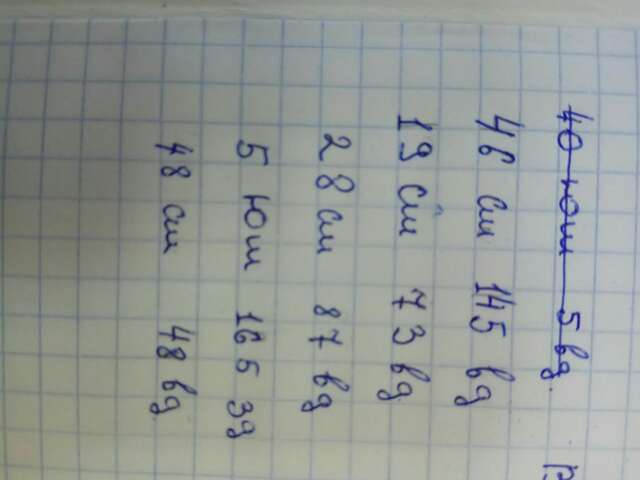 40 юш 5 вд.
46 см 145 вд
19 см 73 вд
28 см 87 вд
5 юш 165 зд
48 см 48 вд